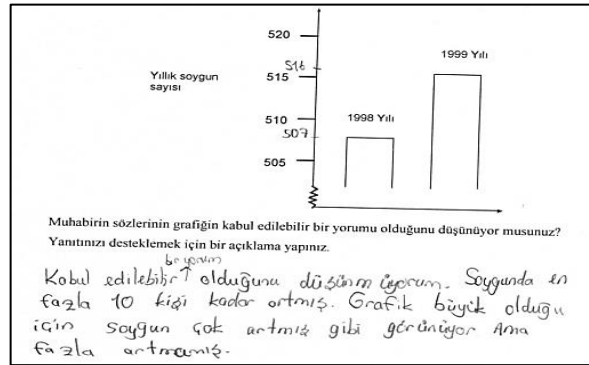 520
1999 Yılı
516
Yıllık soygun
sayısı
515
510
1998 Yılı
507
505
Muhabirin sözlerinin grafiğin kabul edilebilir bir yorumu olduğunu düşünüyor musunuz?
Yanıtınızı desteklemek için bir açıklama yapınız.
bir yorum
Kabul edilebilir ↑ olduğunu düşünmüyorum. Soygunda en
fazla 10 kişi kadar artmış. Grafik büyük olduğu
için soygun çok artmış gibi görünüyor Ama
fazla artmamış.